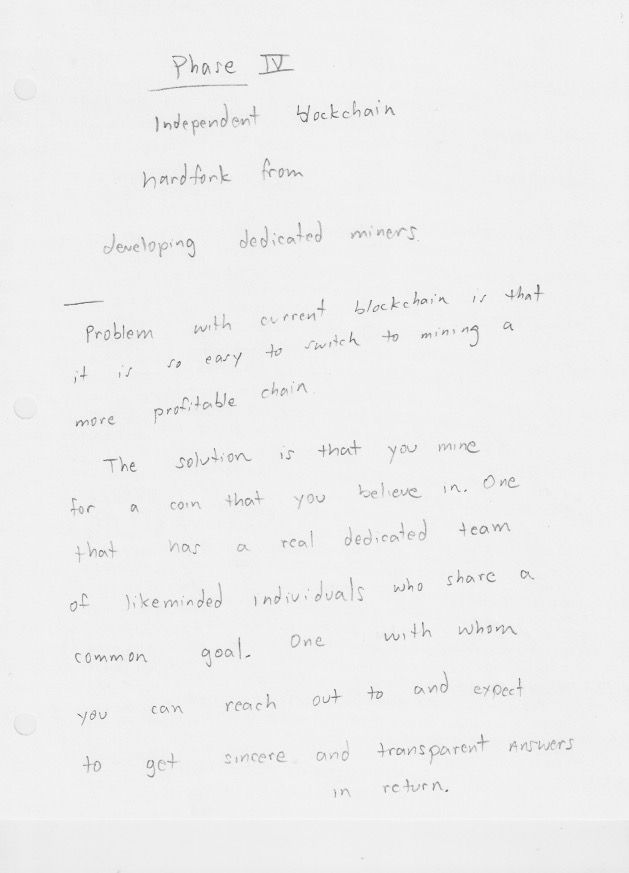 Phase IV
Independent blockchain
hardfork from
developing dedicated miners.
Problem with current blockchain is that
it is so easy to switch to mining a
more profitable chain.
The solution is that you mine
for a coin that you believe in. One
that has a real dedicated team
of likeminded individuals who share a
common goal. One with whom
you can reach out to and expect
to get sincere and transparent answers
in return.